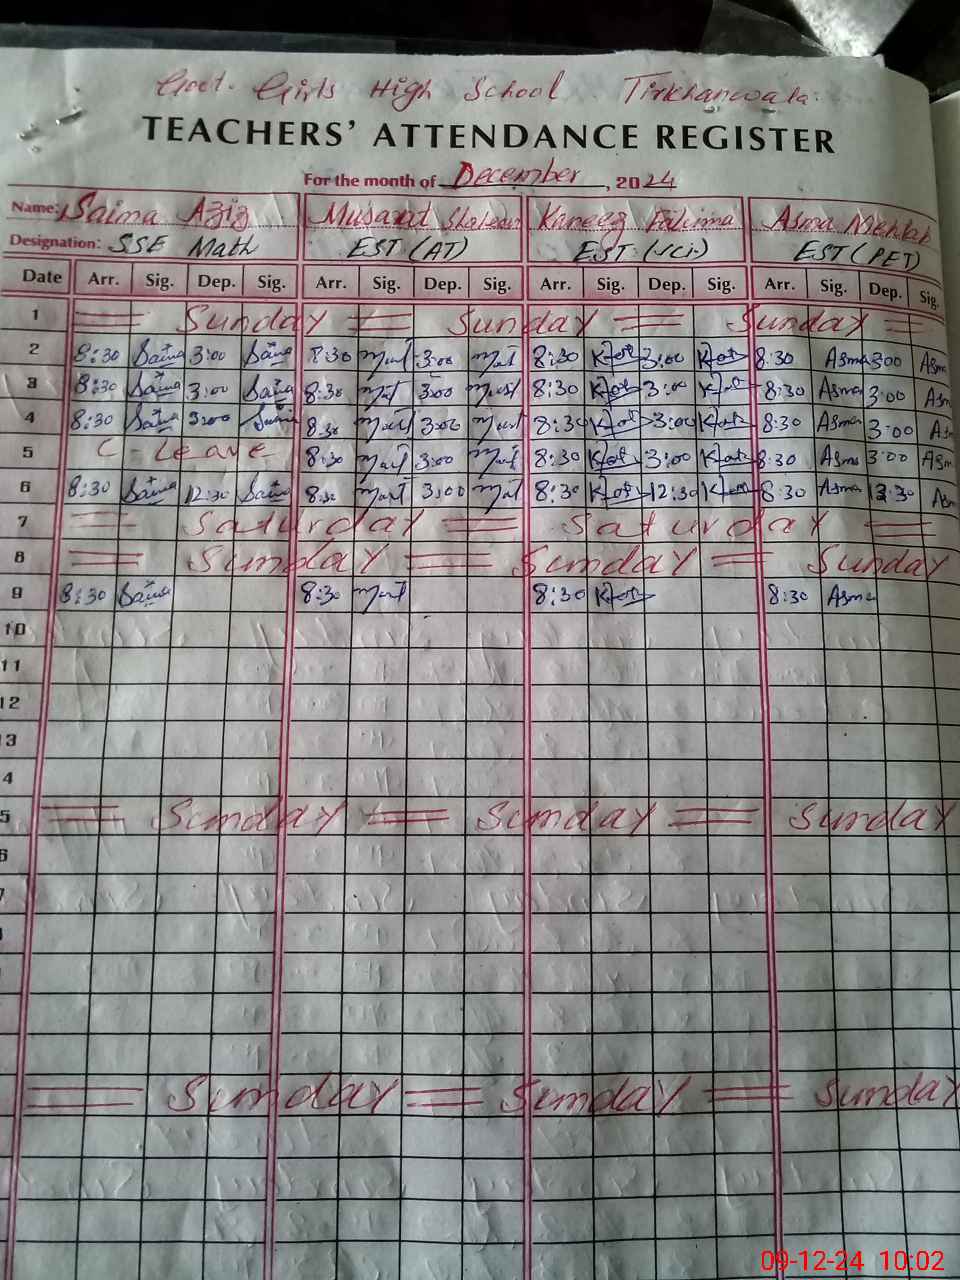 Govt. Girls High School Tirkhanwala.
TEACHERS' ATTENDANCE REGISTER
For the month of December, 2024
Name: Saima Aziz Musarat Shaheen Kaneez Fatima Asma Mehtab
Designation: SSE Math EST (AT) EST (Sci) EST (PET)
Date Arr. Sig. Dep. Sig. Arr. Sig. Dep. Sig. Arr. Sig. Dep. Sig. Arr. Sig. Dep. Sig.
1 Sunday Sunday Sunday
2 8:30 Saima 3:00 Saima 8:30 3:00 8:30 3:00 8:30 Asma 3:00 Asm
3 8:30 Saima 3:00 Saima 8:30 3:00 8:30 3:00 8:30 Asma 3:00 Asm
4 8:30 Saima 3:00 Saima 8:30 3:00 8:30 3:00 8:30 Asma 3:00 As
5 C - Leave 8:30 3:00 8:30 3:00 8:30 Asma 3:00 Asm
6 8:30 Saima 12:30 Saima 8:30 3:00 8:30 12:30 8:30 Asma 12:30 As
7 Saturday Saturday
8 Sunday Sunday Sunday
9 8:30 Saima 8:30 8:30 8:30 Asma
10
11
12
13
4
5 Sunday Sunday Sunday
6
7
Sunday Sunday Sunday
09-12-24 10:02